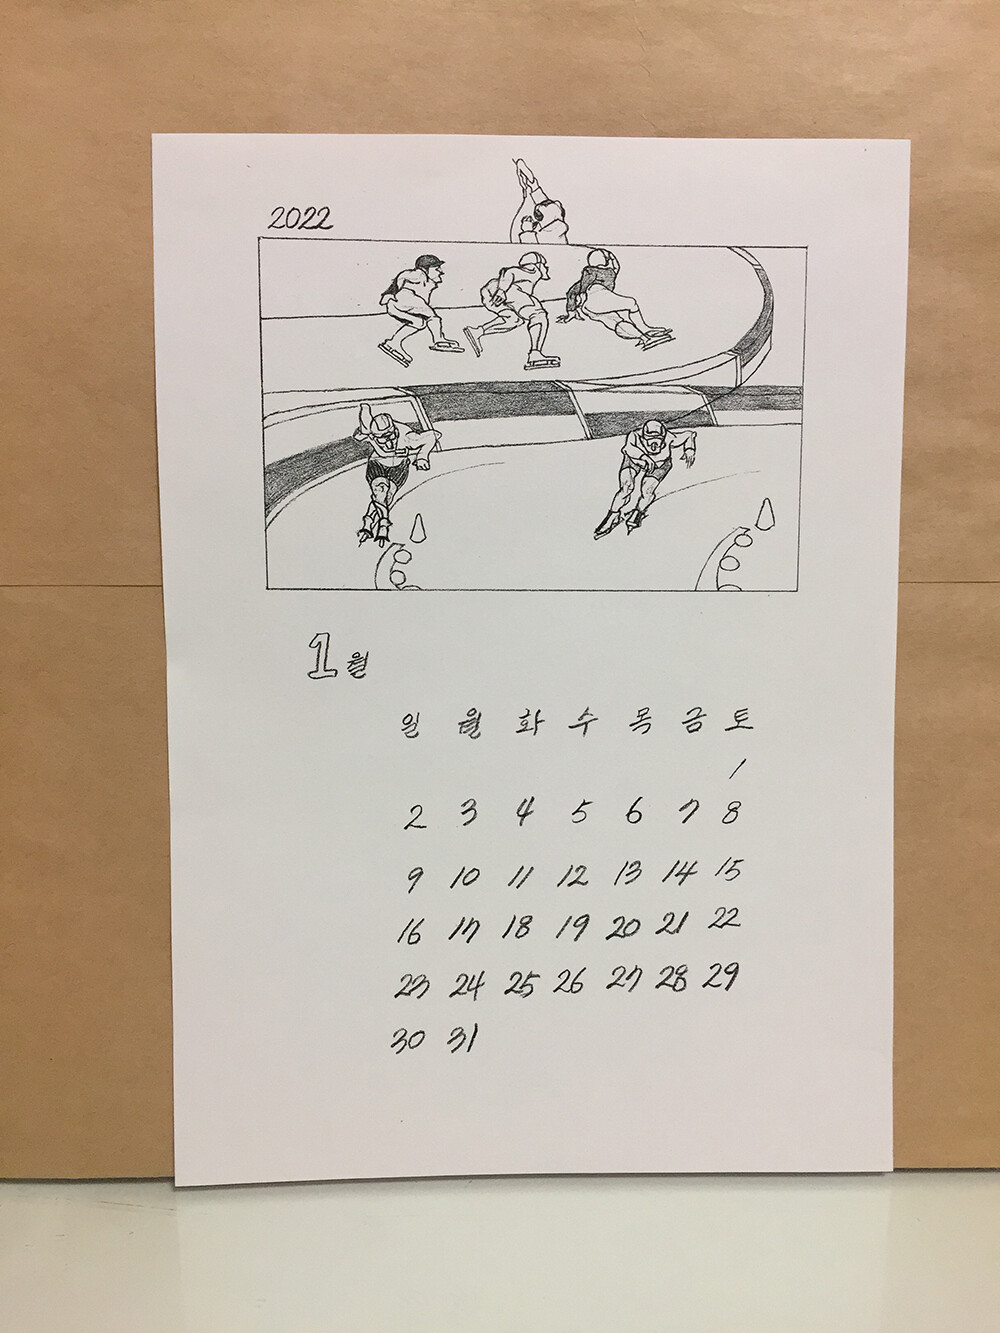 2022
1월
일 월 화 수 목 금 토
1
2 3 4 5 6 7 8
9 10 11 12 13 14 15
16 17 18 19 20 21 22
23 24 25 26 27 28 29
30 31